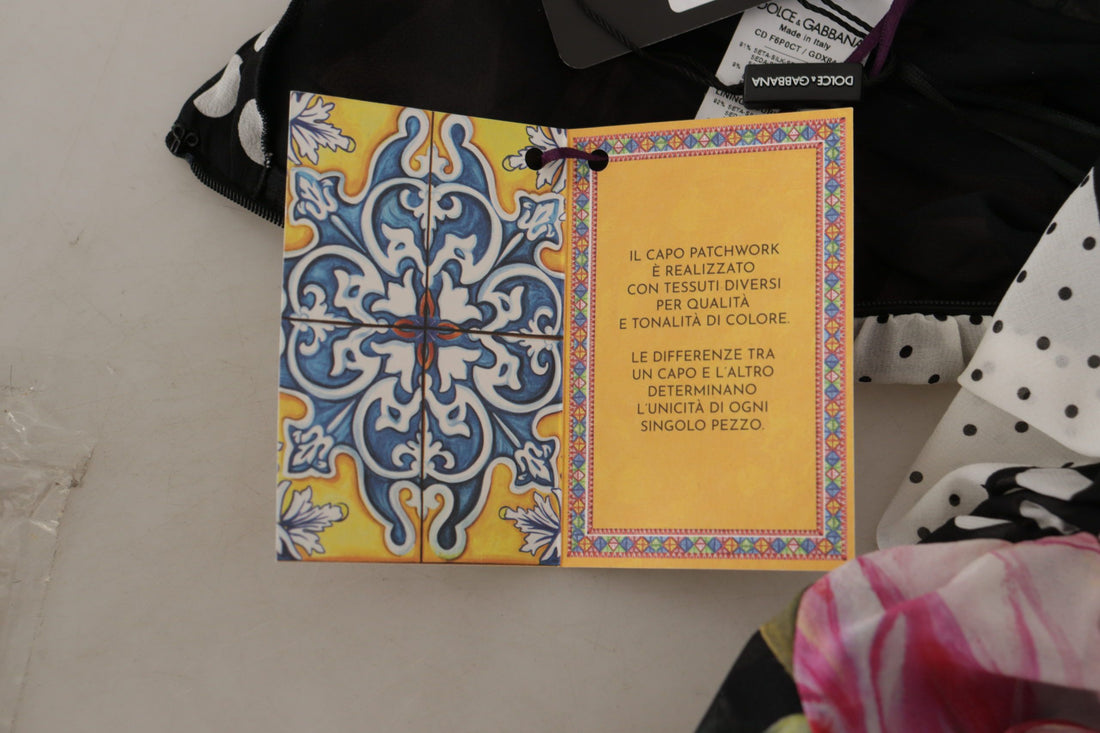 DOLCE & GABBANA
Made in Italy
CD F6P0CT / GDX8A
91% SETA-SILK-
SEDA-
9%
LINING
92% SETA-SE
SED
DOLCE & GABBANA
IL CAPO PATCHWORK
È REALIZZATO
CON TESSUTI DIVERSI
PER QUALITÀ
E TONALITÀ DI COLORE.
LE DIFFERENZE TRA
UN CAPO E L'ALTRO
DETERMINANO
L'UNICITÀ DI OGNI
SINGOLO PEZZO.